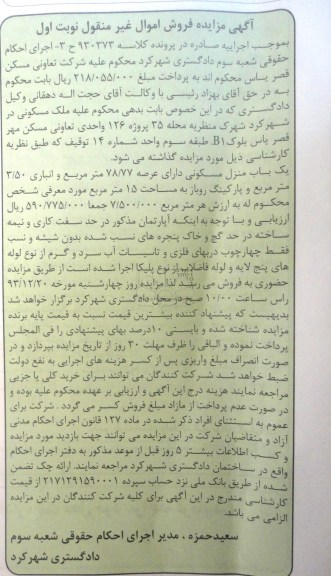 آگهی مزایده فروش اموال غیر منقول نوبت اول
بموجب اجراییه صادره در پرونده کلاسه ۹۳۰۳۷۳ ج ۳- اجرای احکام
حقوقی شعبه سوم دادگستری شهرکرد محکوم علیه شرکت تعاونی مسکن
قصر یاس محکوم اند به پرداخت مبلغ ۲۱۸/۰۵۵/۰۰۰ ریال بابت محکوم
به در حق آقای بهزاد رئیسی با وکالت آقای حجت اله دهقانی وکیل
دادگستری که در این خصوص بابت بدهی محکوم علیه ملک مسکونی در
شهرکرد شهرک منظریه محله ۳۵ پروژه ۱۲۶ واحدی تعاونی مسکن مهر
قصر یاس بلوک B۱ طبقه سوم واحد شماره ۱۴ توقیف که طبق نظریه
کارشناسی ذیل مورد مزایده گذاشته می شود.
یک باب منزل مسکونی دارای عرصه ۷۸/۷۷ متر مربع و انباری ۳/۵۰
متر مربع و پارکینگ روباز به مساحت ۱۵ متر مربع مورد معرفی شخص
محکوم له به ارزش هر متر مربع ۷/۵۰۰/۰۰۰ جمعا ۵۹۰/۷۷۵/۰۰۰ ریال
ارزیابی و با توجه به اینکه آپارتمان مذکور در حد سفت کاری و نیمه
ساخته در حد گچ و خاک پنجره های نسب شده بدون شیشه و نسب
فقط چهارچوب دربهای فلزی و تاسیسات آب سرد و گرم از نوع لوله
های پنج لایه و لوله فاضلاب از نوع پلیکا اجرا شده است از طریق مزایده
حضوری به فروش می رسد لذا مزایده روز چهارشنبه مورخه ۹۳/۱۲/۲۰
راس ساعت ۱۰/۰۰ صبح در محل دادگستری شهرکرد برگزار خواهد شد
بدیهیست که پیشنهاد کننده بیشترین قیمت نسبت به قیمت پایه برنده
مزایده شناخته شده و بایستی ۱۰درصد بهای پیشنهادی را فی المجلس
پرداخت نموده و الباقی را ظرف مهلت ۳۰ روز از تاریخ مزایده بپردازد و در
صورت انصراف مبلغ واریزی پس از کسر هزینه های اجرایی به نفع دولت
ضبط خواهد شد شرکت کنندگان می توانند برای خرید کلی یا جزیی
مراجعه نمایند هزینه درج این آگهی و ارزیابی بر عهده محکوم علیه بوده و
در صورت عدم پرداخت از مازاد مبلغ فروش کسر می گردد . شرکت برای
عموم به استثنای افراد ذکر شده در ماده ۱۲۷ قانون اجرای احکام مدنی
آزاد و متقاضیان شرکت در این مزایده می توانند جهت بازدید مورد مزایده
و کسب اطلاعات بیشتر ۵ روز قبل از موعد مذکور به دفتر اجرای احکام
واقع در ساختمان دادگستری شهرکرد مراجعه نمایند. ارائه چک تضمن
شده از طریق بانک ملی نزد حساب سپرده ۲۱۷۱۲۹۱۵۹۰۰۰۱ از قیمت
کارشناسی مندرج در این آگهی برای کلیه شرکت کنندگان در این مزایده
الزامی می باشد.
سعیدحمزه ، مدیر اجرای احکام حقوقی شعبه سوم
دادگستری شهرکرد